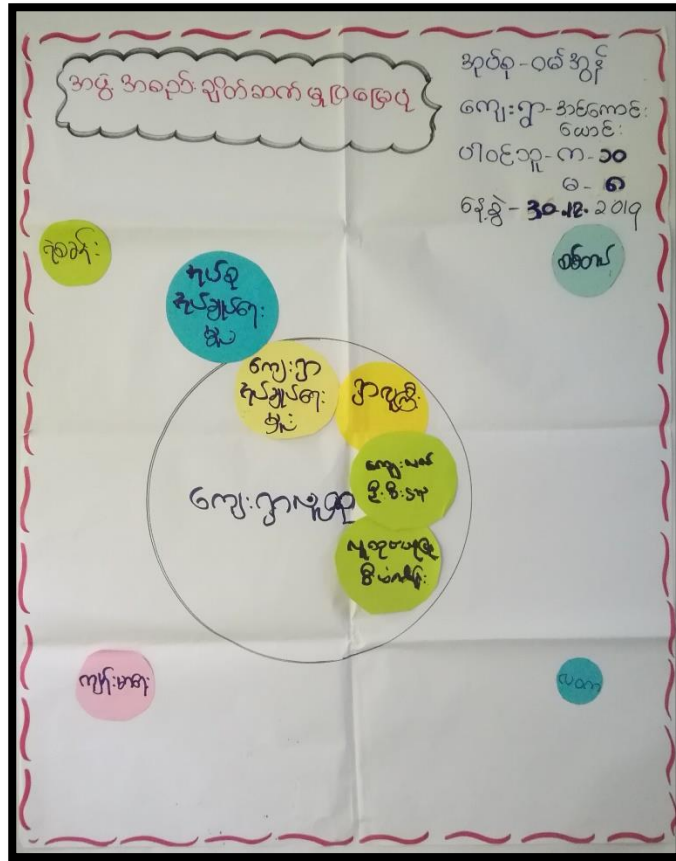 အဖွဲ့အစည်း ချိတ်ဆက်မှုပြမြေပုံ
အုပ်စု - ဝမ်အွန်
ကျေးရွာ - အင်ကောင်း
ယောင်း
ပါဝင်သူ - ကျ - ၁၀
မ - ၈
နေ့စွဲ - 30.12.2019
ရဲစခန်း
စစ်တပ်
အုပ်စု
အုပ်ချုပ်ရေး
မှူး
ကျေးရွာ
အုပ်ချုပ်ရေး
မှူး
ရွာလူကြီး
ကျေးလက်
ဦးစီးဌာန
ကျေးရွာလူထု
လူထုဗဟိုပြု
စီမံကိန်း
ကျန်းမာရေး
လဝက